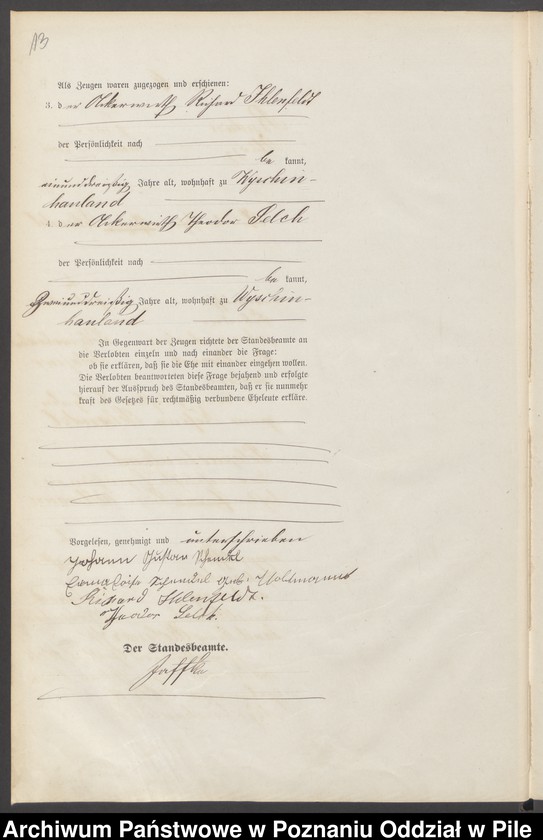 13
Als Zeugen waren zugezogen und erschienen:
3. der Ackerwirth Richard Ihlenfeldt
der Persönlichkeit nach
be kannt,
einunddreißig Jahre alt, wohnhaft zu Wyschin-
hauland
4. der Ackerwirth Theodor Selch
der Persönlichkeit nach
be kannt,
Zweiunddreißig Jahre alt, wohnhaft zu Wyschin-
hauland
In Gegenwart der Zeugen richtete der Standesbeamte an
die Verlobten einzeln und nach einander die Frage:
ob sie erklären, daß sie die Ehe mit einander eingehen wollen.
Die Verlobten beantworteten diese Frage bejahend und erfolgte
hierauf der Ausspruch des Standesbeamten, daß er sie nunmehr
kraft des Gesetzes für rechtmäßig verbundene Eheleute erkläre.
Vorgelesen, genehmigt und unterschrieben
Johann Gustav Schenkel
Schenkel geb.
Richard Ihlenfeldt.
Theodor Selch.
Der Standesbeamte.
Jaffke
Archiwum Państwowe w Poznaniu Oddział w Pile